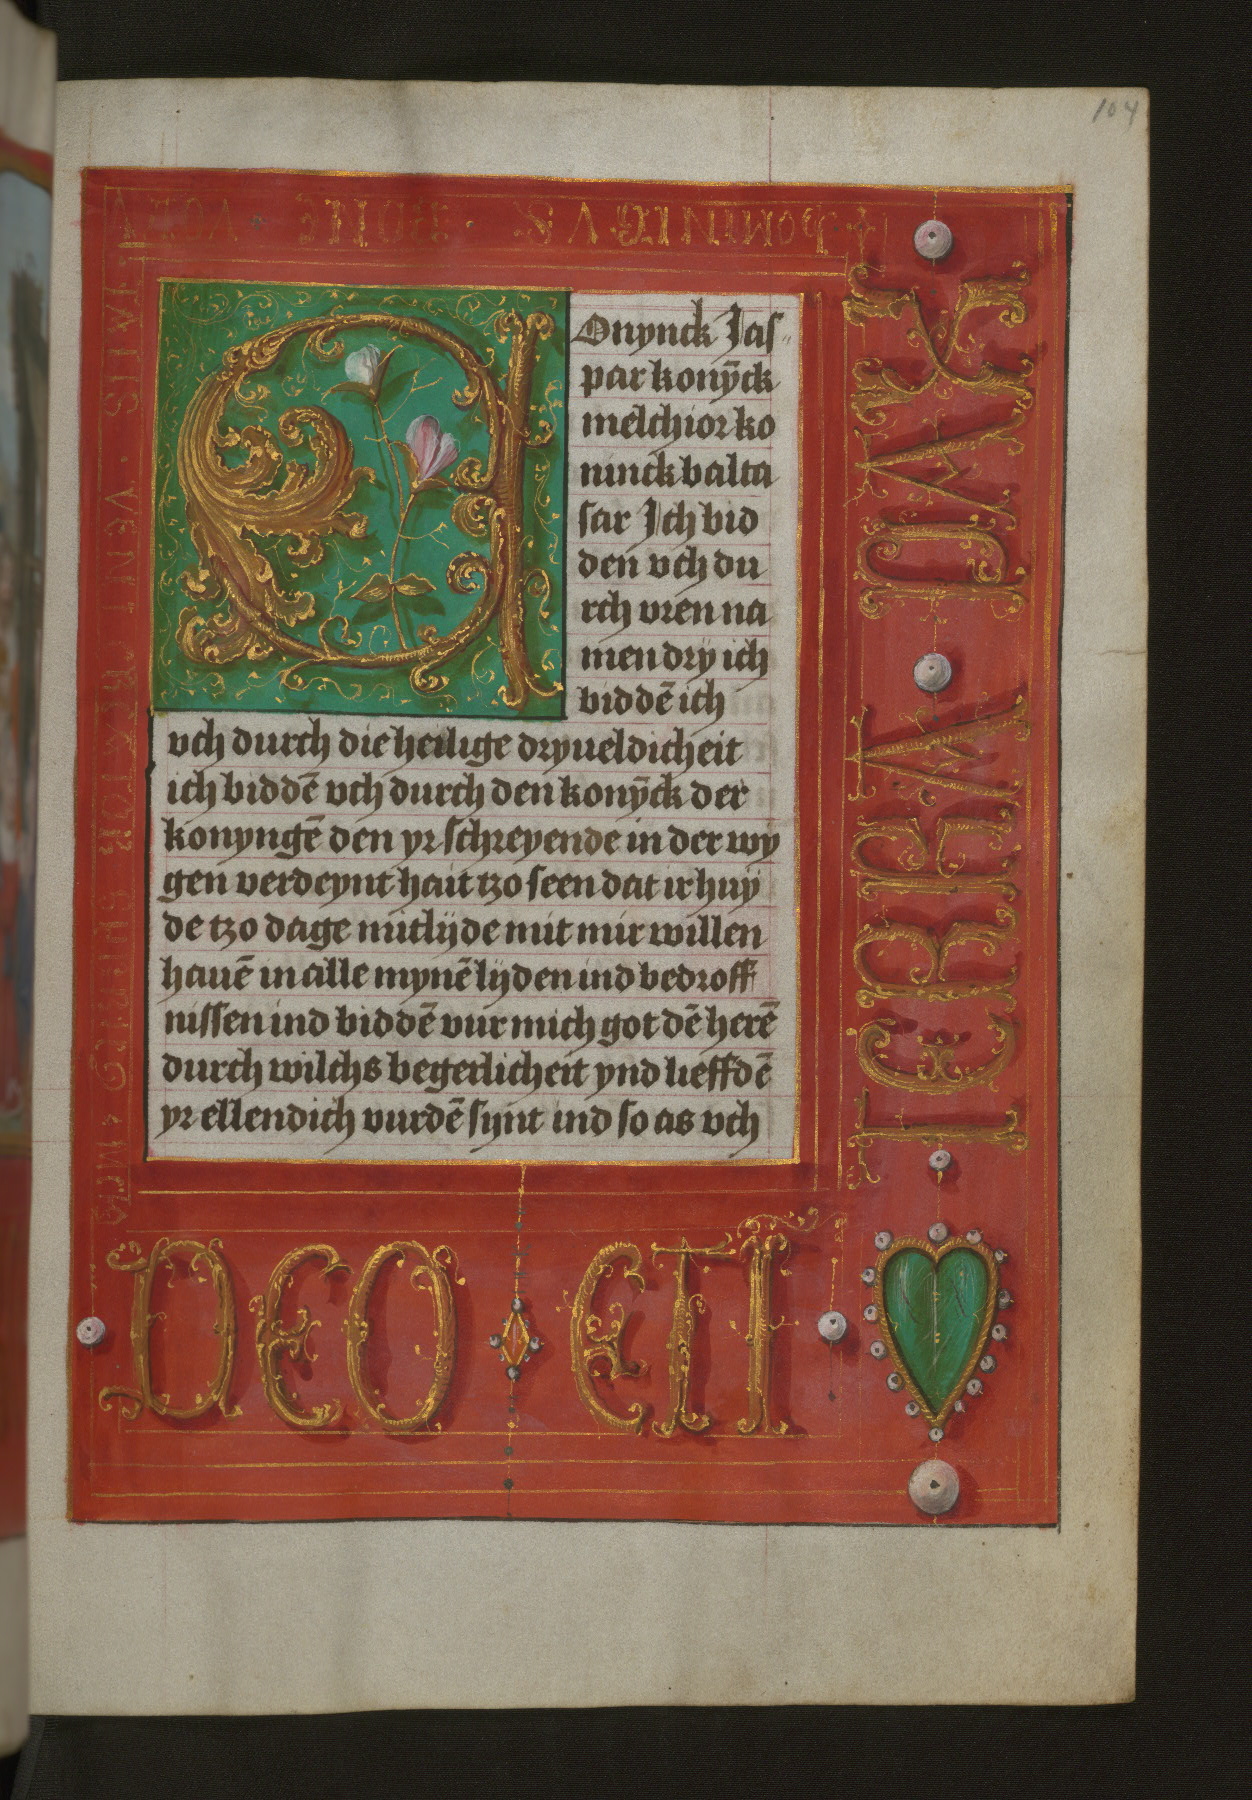 104
Onynck Jas
par konȳck
melchior ko
ninck balta
sar Ich bid
den vch du
rch vren na
men dry ich
biddē ich
vch durch die heilige dryueldicheit
ich biddē vch durch den konȳck der
konyngē den yr schreyende in der wy
gen verdeynt hait tzo seen dat ir huy
de tzo dage mitlijde mit mir willen
hauē in alle mynē lijden ind bedroff
nissen ind biddē vur mich got dē herē
durch wilchs begerlicheit ynd lieffdē
yr ellendich vurdē synt ind so as vch
DEO ET I
TERRA PAX